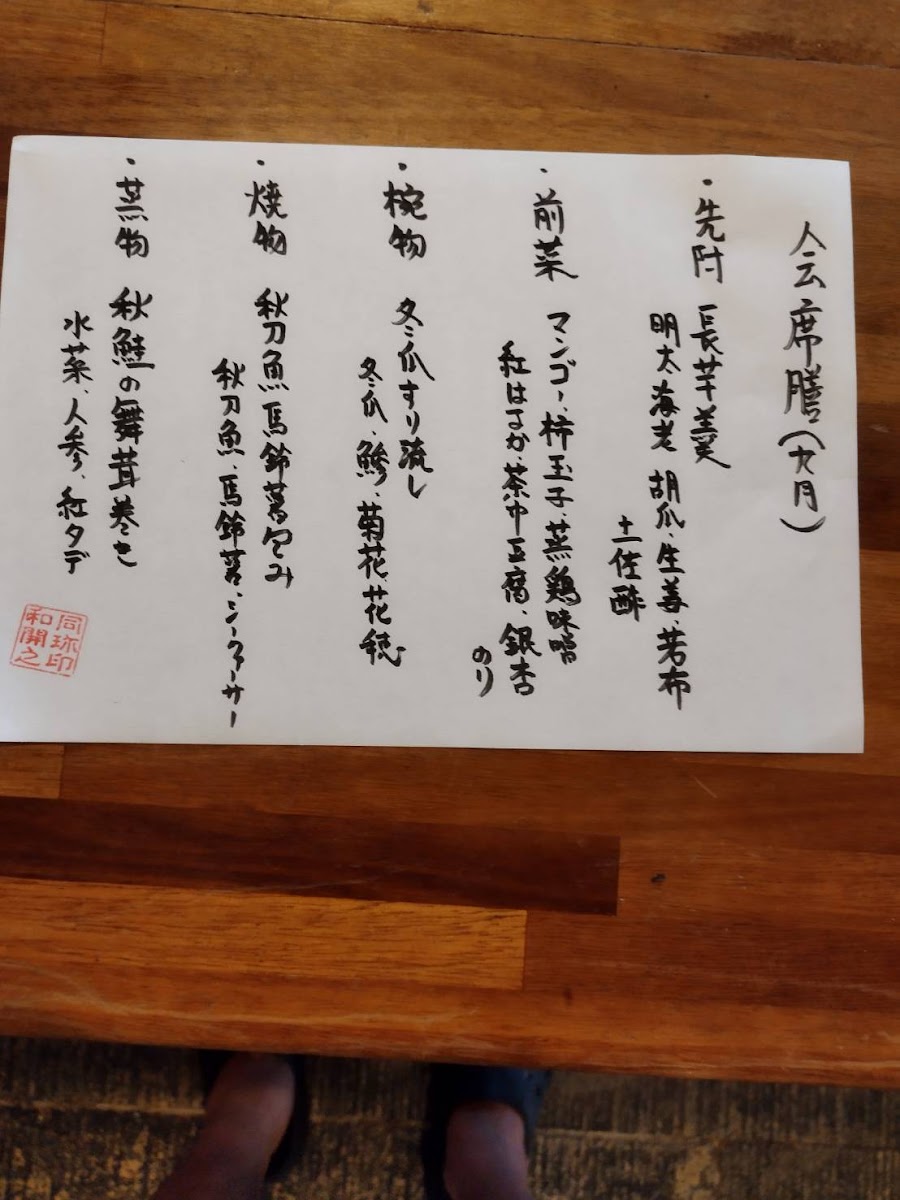 会席膳(九月)
・先附 長芋羹
明太海老 胡瓜、生姜、若布
土佐酢
・前菜 マンゴー、柿玉子、蒸鶏味噌
紅はるか、茶巾豆腐、銀杏
のり
・椀物 冬瓜すり流し
冬瓜、鯵、菊花、花穂
・焼物 秋刀魚馬鈴薯包み
秋刀魚、馬鈴薯、シークァーサー
・蒸物 秋鮭の舞茸巻き
水菜、人参、紅タデ